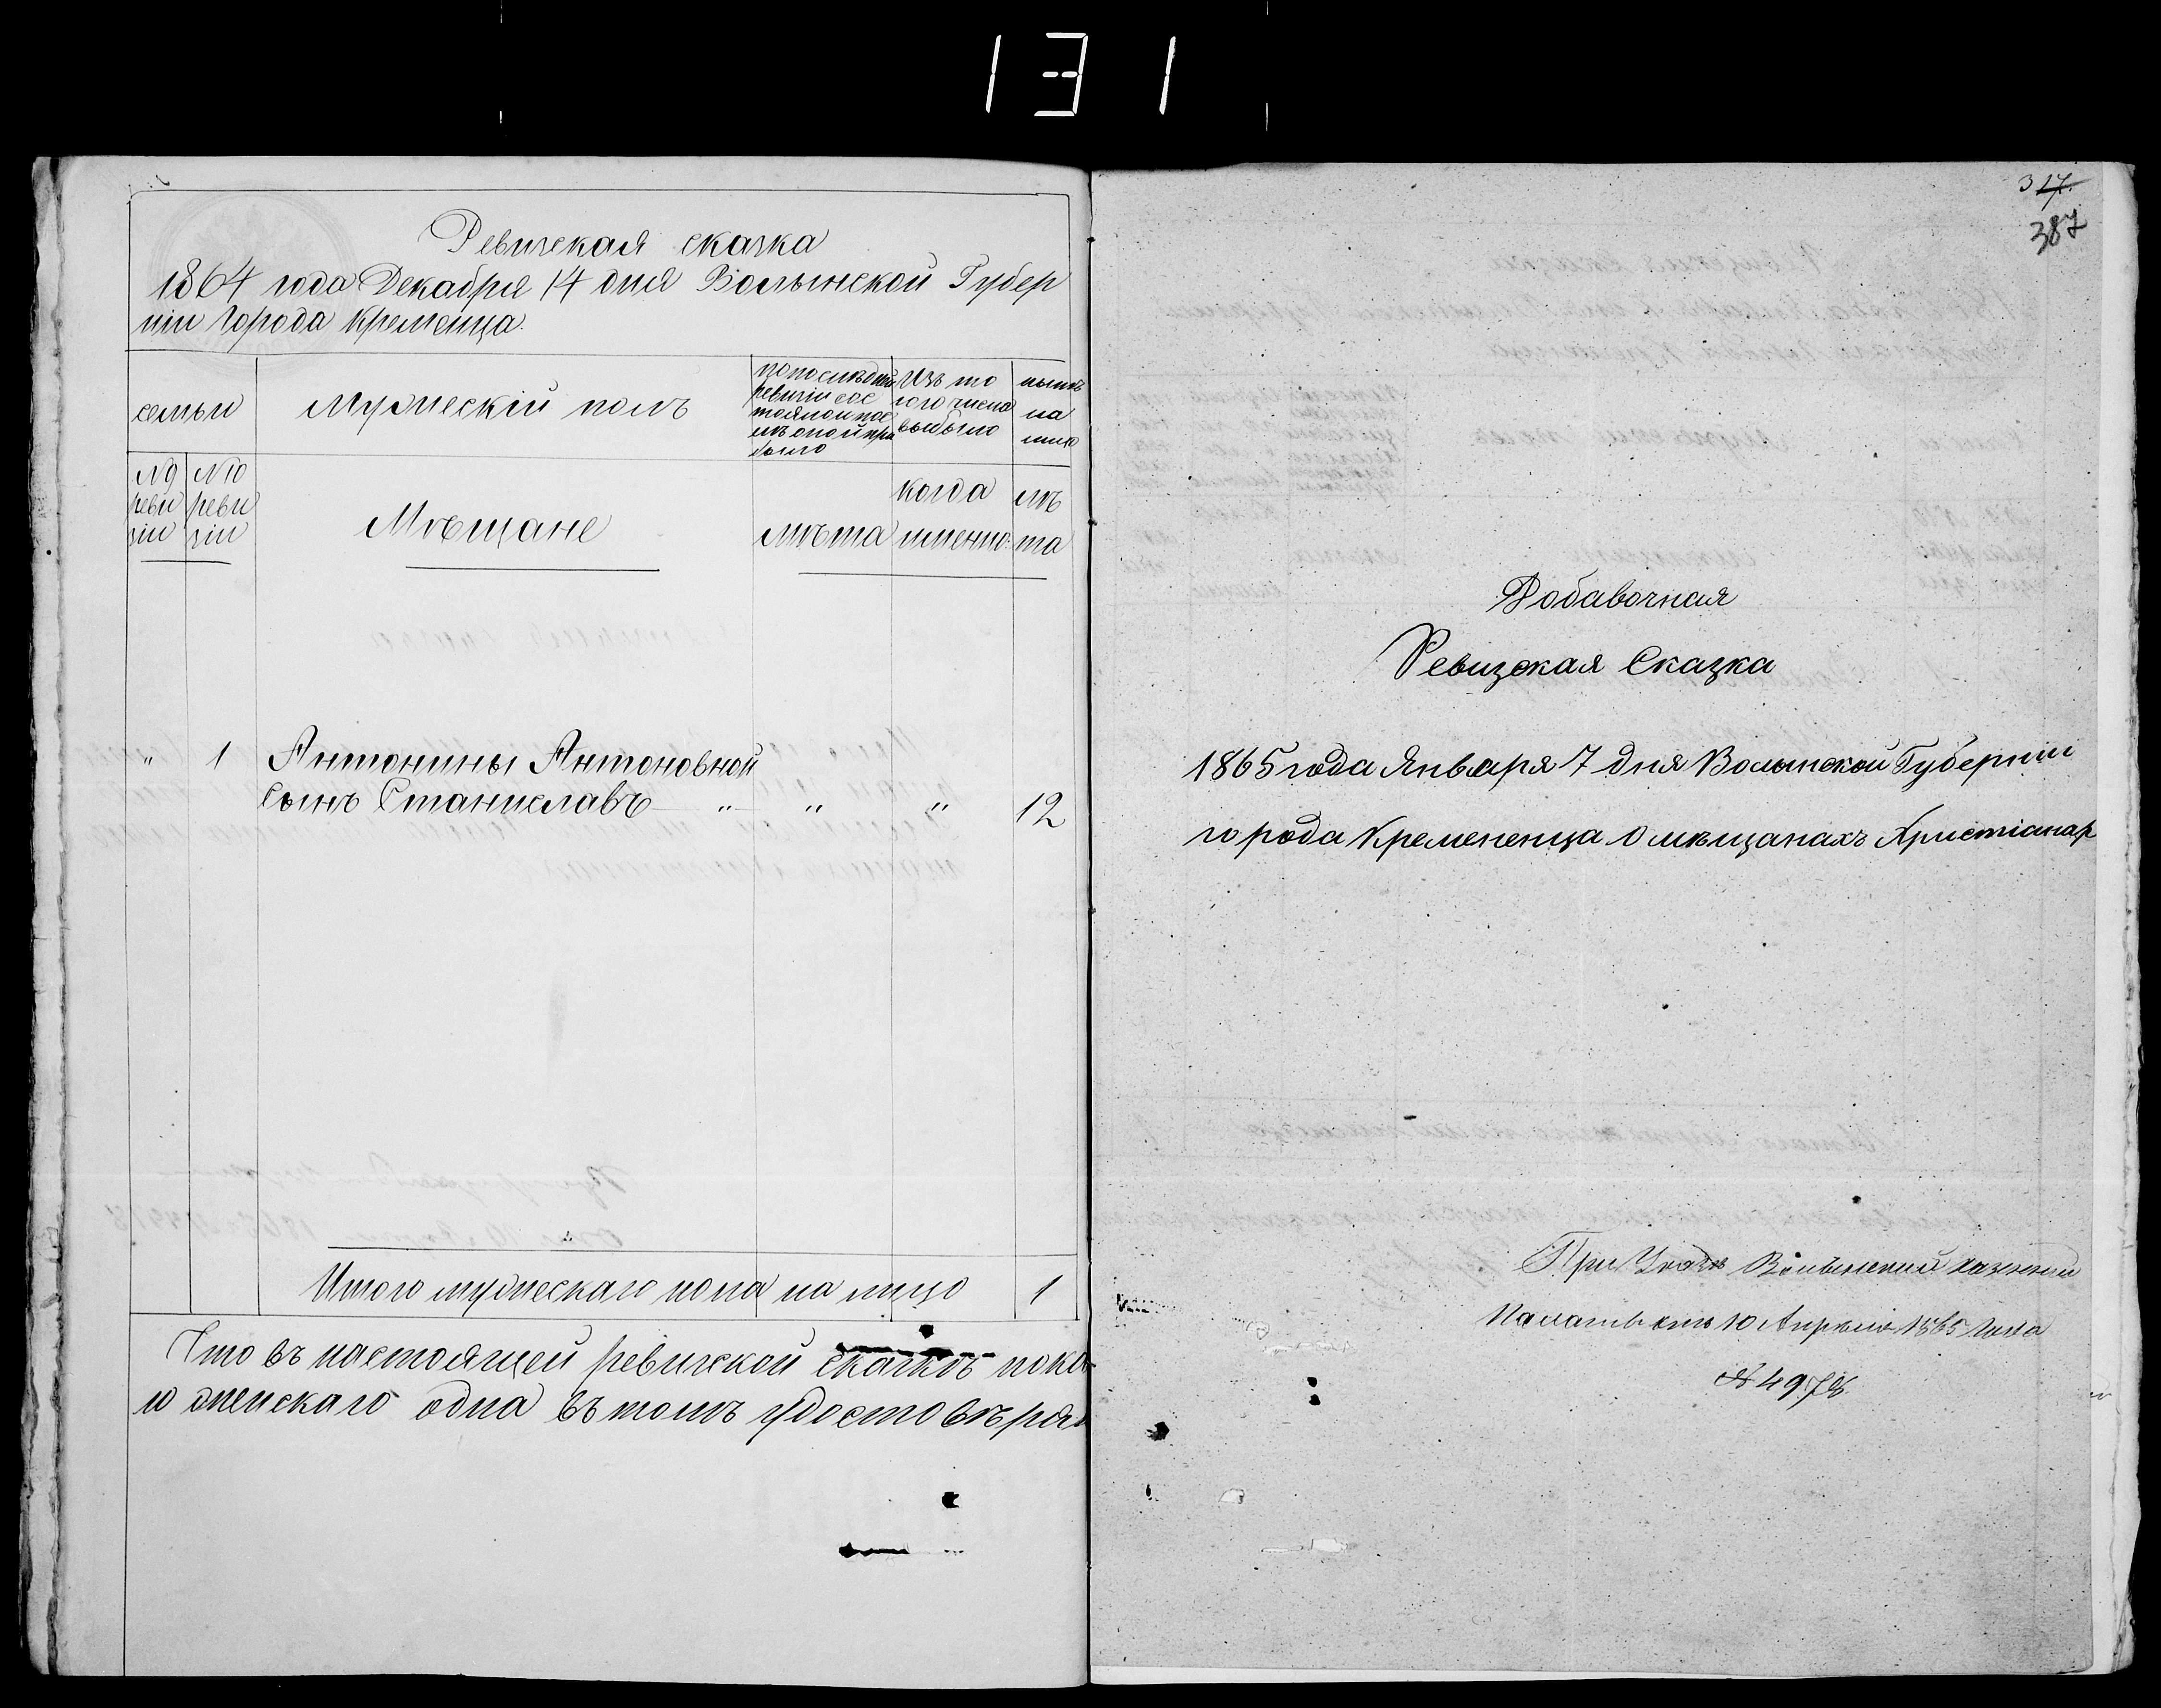 131
Ревизская сказка
1864 года Декабря 14 дня Волынской Губер
нiи Города Кременца.
семьи
Мужескiй полъ
по последней
ревизiи сос
тояло и пос
лѣ оной при
было
Изъ то
го числа
выбыло
нынѣ
на
лицо
№ 9
реви
зiи
№ 10
реви
зiи
Мѣщане
лѣта
когда
именно:
лѣ
та
" 1 Антонины Антоновной
сынъ Станиславъ " " " 12
Итого мужескаго пола на лицо 1
Что въ настоящей ревизской сказкѣ пока
и женскаго одна въ томъ удостовѣря
317.
387
Добавочная
Ревизская Сказка
1865 года Января 7 дня Волынской Губернiи
города Кремененца о мѣщанахъ Христiанах
При Указѣ Волынской Казенной
Палаты отъ 10 Апрѣля 1865 года
№ 4978